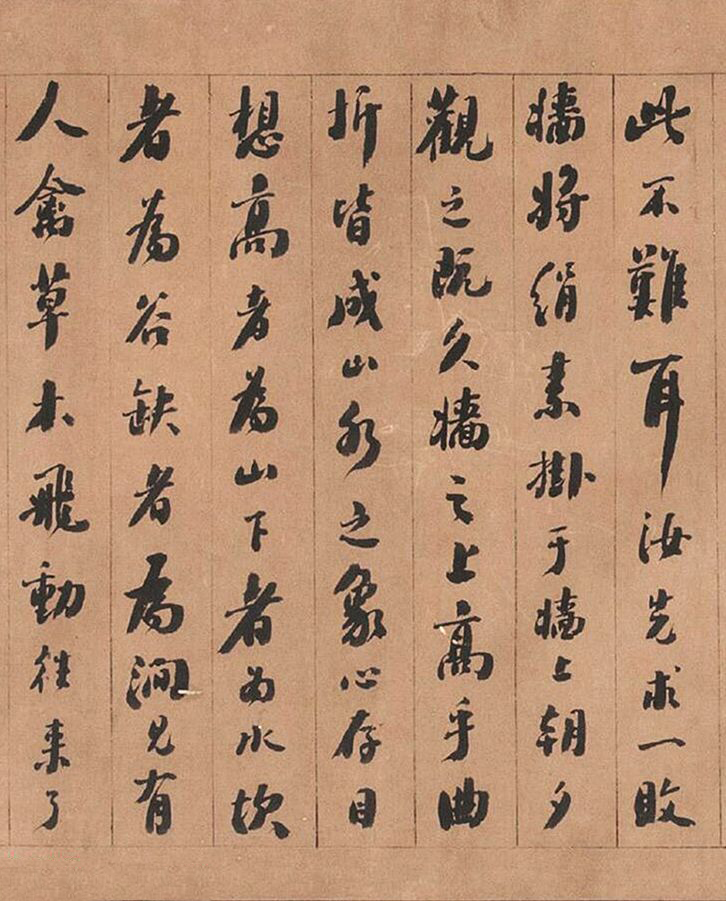 此不難耳汝先求一敗
墻將絹素掛于墻上朝夕
觀之既久墻之上高乎曲
折皆成山水之象心存目
想高者為山下者為水坎
者為谷缺者為澗見有
人禽草木飛動往来了